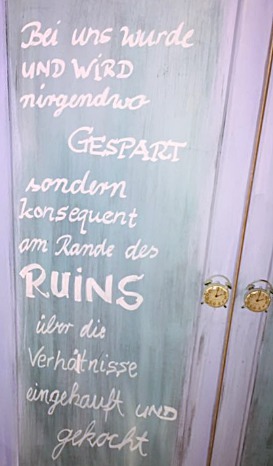 Bei uns wurde
UND WIRD
nirgendwo
GESPART
sondern
konsequent
am Rande des
RUINS
über die
Verhältnisse
eingekauft UND
gekocht